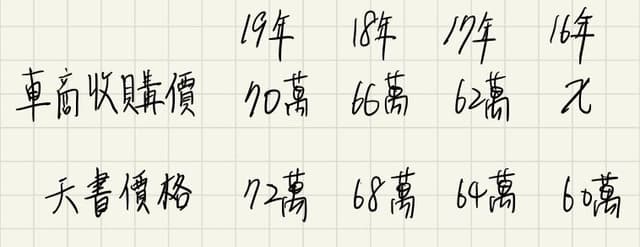 19年 18年 17年 16年
車商收購價 70萬 66萬 62萬 x
天書價格 72萬 68萬 64萬 60萬